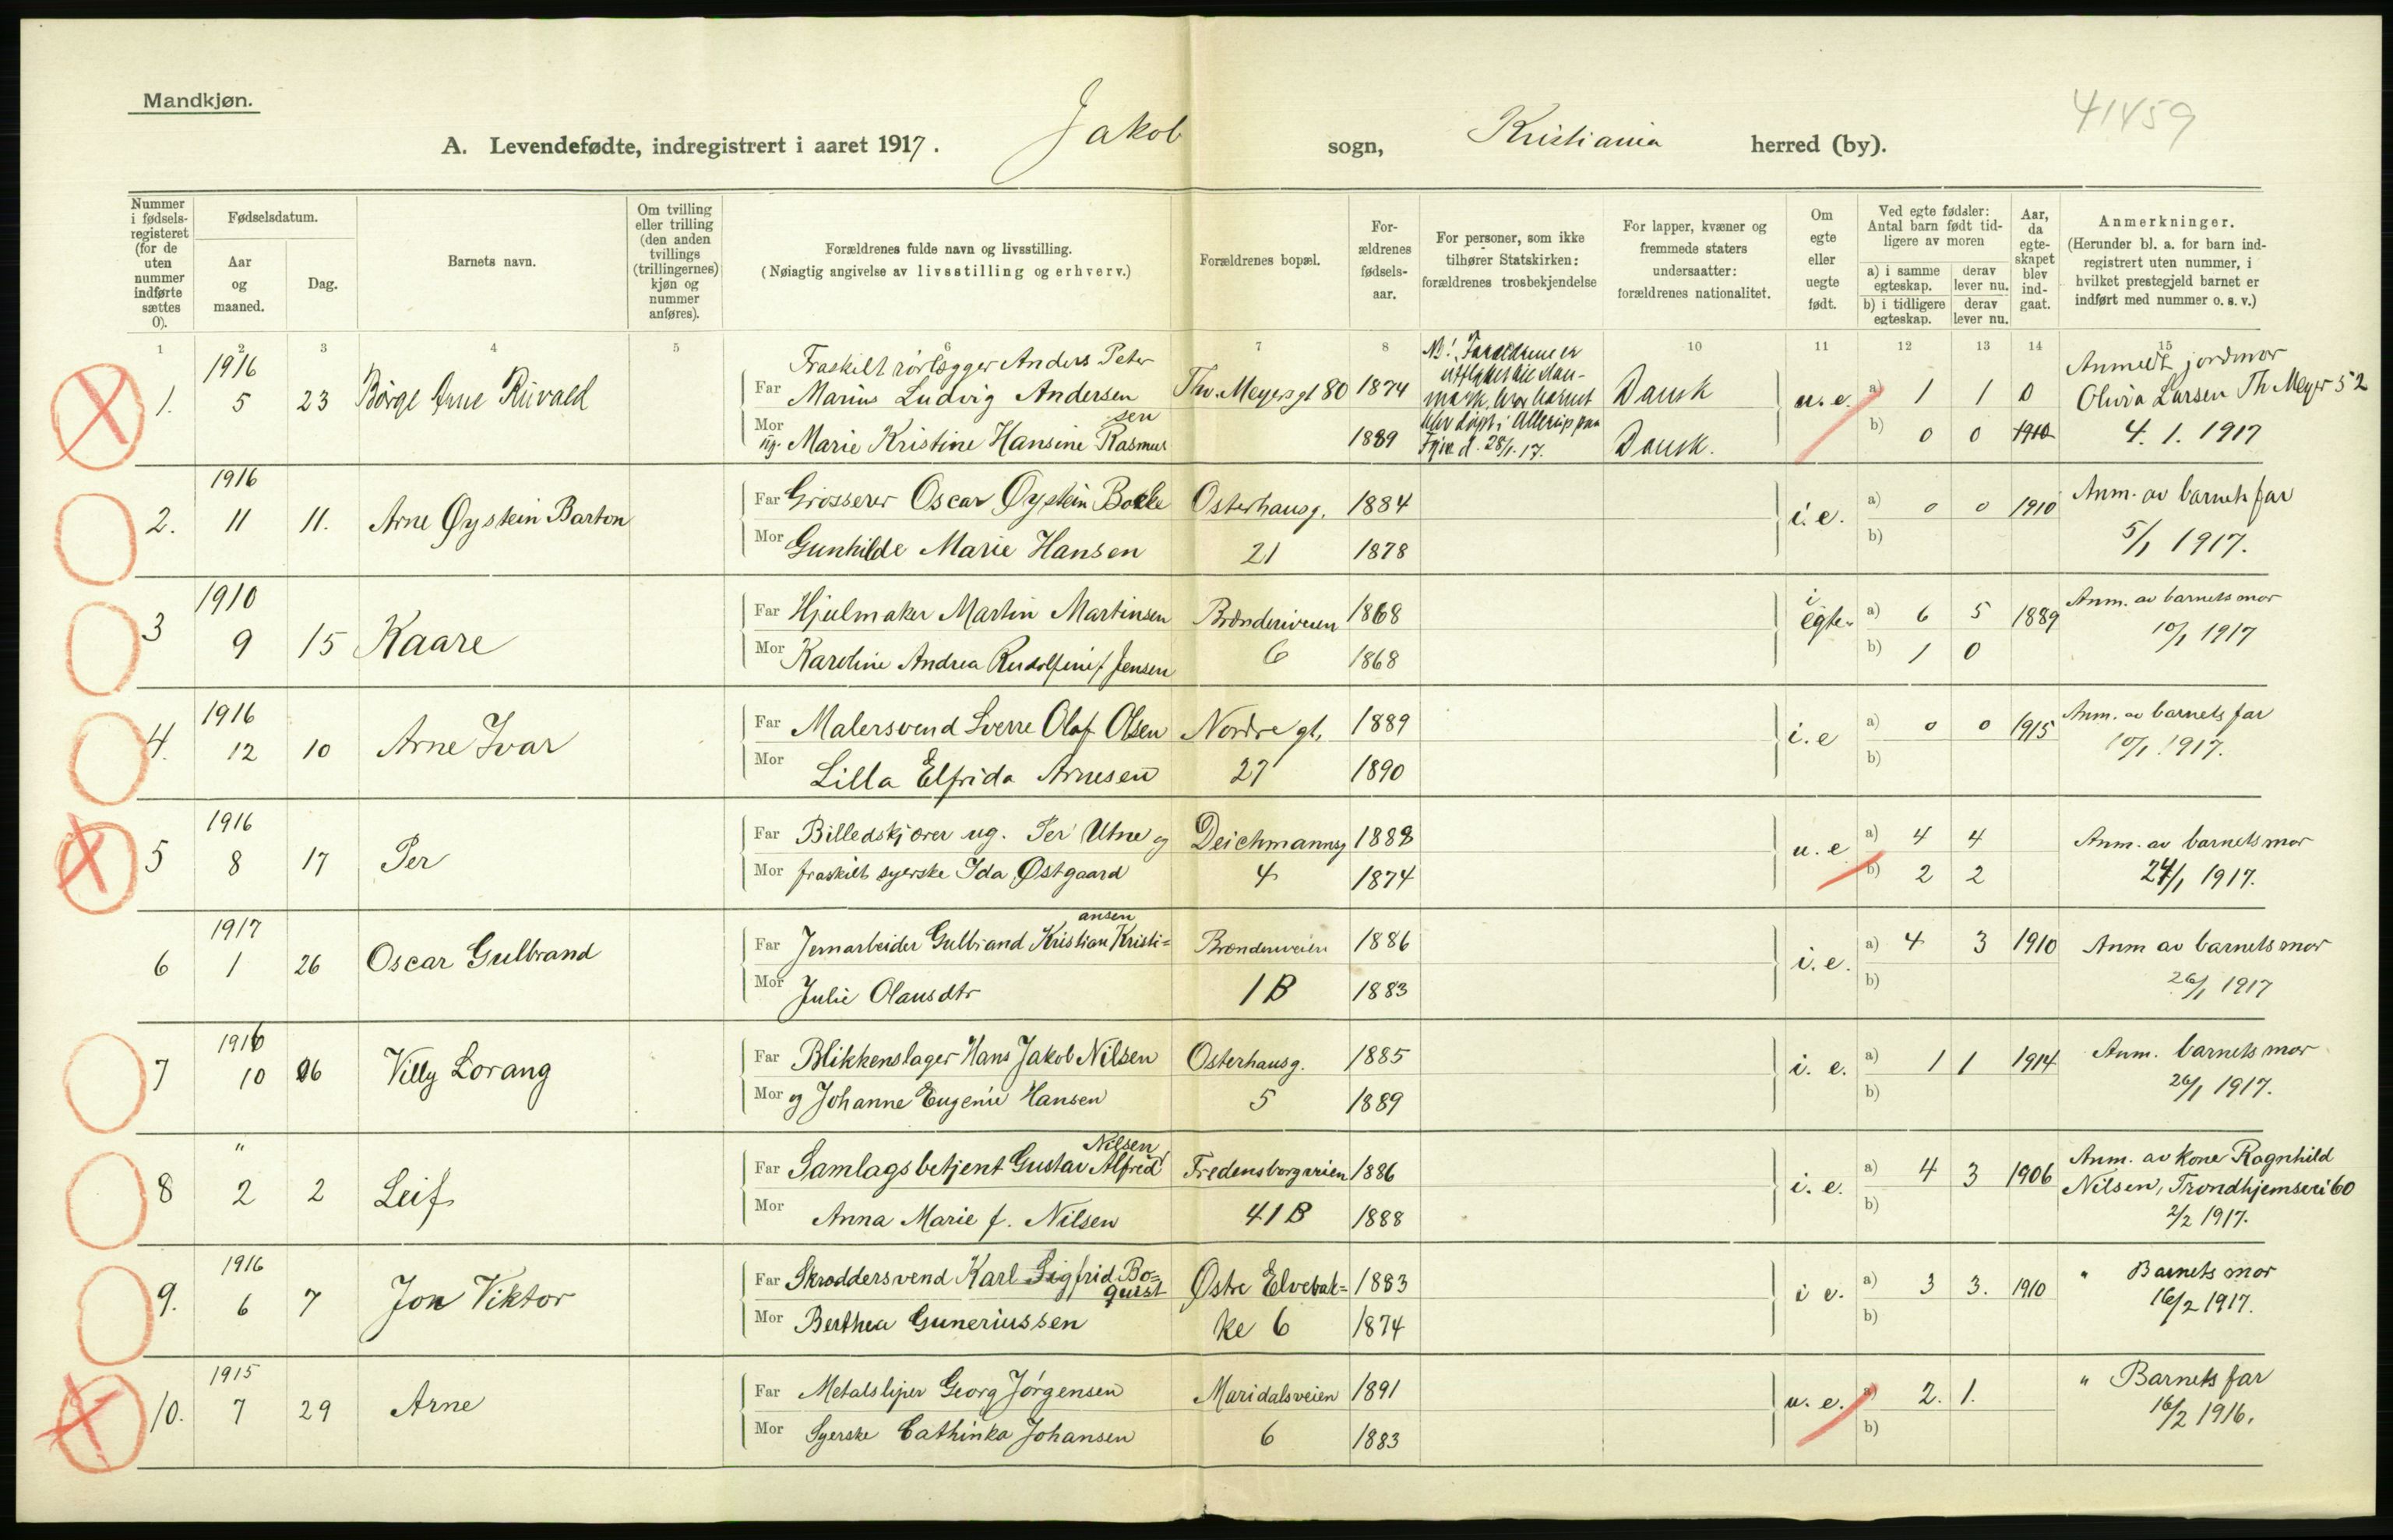 Mandkjøn.
41459
A. Levendefødte, indregistrert i aaret 1917. Jakob sogn, Kristiania herred (by).
Nummer i fødsels-registeret (for de uten nummer indførte sættes 0).
Fødselsdatum.
Aar og maaned.
Dag.
Barnets navn.
Om tvilling eller trilling (den anden tvillings (trillingernes) kjøn og nummer anføres).
Forældrenes fulde navn og livsstilling.
(Nøiagtig angivelse av livsstilling og erhverv.)
Forældrenes bopæl.
For-ældrenes fødsels-aar.
For personer, som ikke tilhører Statskirken: forældrenes trosbekjendelse
For lapper, kvæner og fremmede staters undersaatter: forældrenes nationalitet.
Om egte eller uegte født.
Ved egte fødsler: Antal barn født tid-ligere av moren
a) i samme egteskap. derav lever nu.
b) i tidligere egteskap. derav lever nu.
Aar, da egte-skapet blev ind-gaat.
Anmerkninger.
(Herunder bl. a. for barn ind-registrert uten nummer, i hvilket prestegjeld barnet er indført med nummer o. s. v.)
1 2 3 4 5 6 7 8 10 11 12 13 14 15
1. 1916 5 23 Børge Arne Rüvald
Fraskilt rørlægger Anders Peter
Far Marius Ludvig Andersen Thv. Meyersgt 80 1874
Mor ug. Marie Kristine Hansine Rasmussen 1889
NB! Forældrene er
utflyttet til Dan-
mark, hvor barnet
blev døpt i Allerup paa
Fyen d. 28/1-17.
Dansk
Dansk.
u. e. a) 1 1 0
b) 0 0 1910
Anmeldt jordmor
Olivia Larsen Th Meyer 52
4. 1. 1917
2. 1916 11 11. Arne Øystein Barton
Far Grosserer Oscar Øystein Osterhausg. 1884
Mor Gunhilde Marie Hansen 21 1878
i. e. a) 0 0 1910
b)
Anm. av barnets far
5/1 1917.
3 1910 9 15 Kaare
Far Hjulmaker Martin Martinsen Brænderiveien 1868
Mor Karoline Andrea Rudolfine f. Jensen 6 1868
i egte. a) 6 5 1889
b) 1 0
Anm. av barnets mor
10/1 1917
4. 1916 12 10 Arne Ivar
Far Malersvend Sverre Olaf Olsen Nordre gt. 1889
Mor Lilla Elfrida Arnesen 27 1890
i. e a) 0 0 1915
b)
Anm. av barnets far
10/1 1917.
5 1916 8 17 Per
Far Billedskjærer ug. Per Utne og Deichmannsg 1888
Mor fraskilt syerske Ida Østgaard 4 1874
u. e a) 4 4
b) 2 2
Anm. av barnets mor
24/1 1917.
6 1917 1 26 Oscar Gulbrand
Far Jernarbeider Gulbrand Kristian Kristi=ansen Brænderiveien 1886
Mor Julie Olausdtr 1B 1883
i. e. a) 4 3 1910
b)
Anm av barnets mor
26/1 1917
7 1916 10 26 Villy Lorang
Far Blikkenslager Hans Jakob Nilsen Osterhausg. 1885
Mor og Johanne Eugenie Hansen 5 1889
i. e. a) 1 1 1914
b)
Anm. barnets mor
26/1 1917.
8 " 2 2 Leif
Far Samlagsbetjent Gustav Alfred Nilsen Fredensborgveien 1886
Mor Anna Marie f. Nilsen 41B 1888
i. e. a) 4 3 1906
b)
Anm. av kone Ragnhild
Nilsen, Trondhjemsvei 60
2/2 1917.
9. 1916 6 7 Jon Viktor
Far Skræddersvend Karl Sigfrid Bo=quist Østre Elvebak= 1883
Mor Berthea Guneriussen ke 6 1874
i e. a) 3 3. 1910
b)
" Barnets mor
16/2 1917.
10. 1915 7 29 Arne
Far Metalsliper Georg Jørgensen Maridalsveien 1891
Mor Syerske Cathinka Johansen 6 1883
u. e. a) 2. 1.
b)
" Barnets far
16/2 1916.